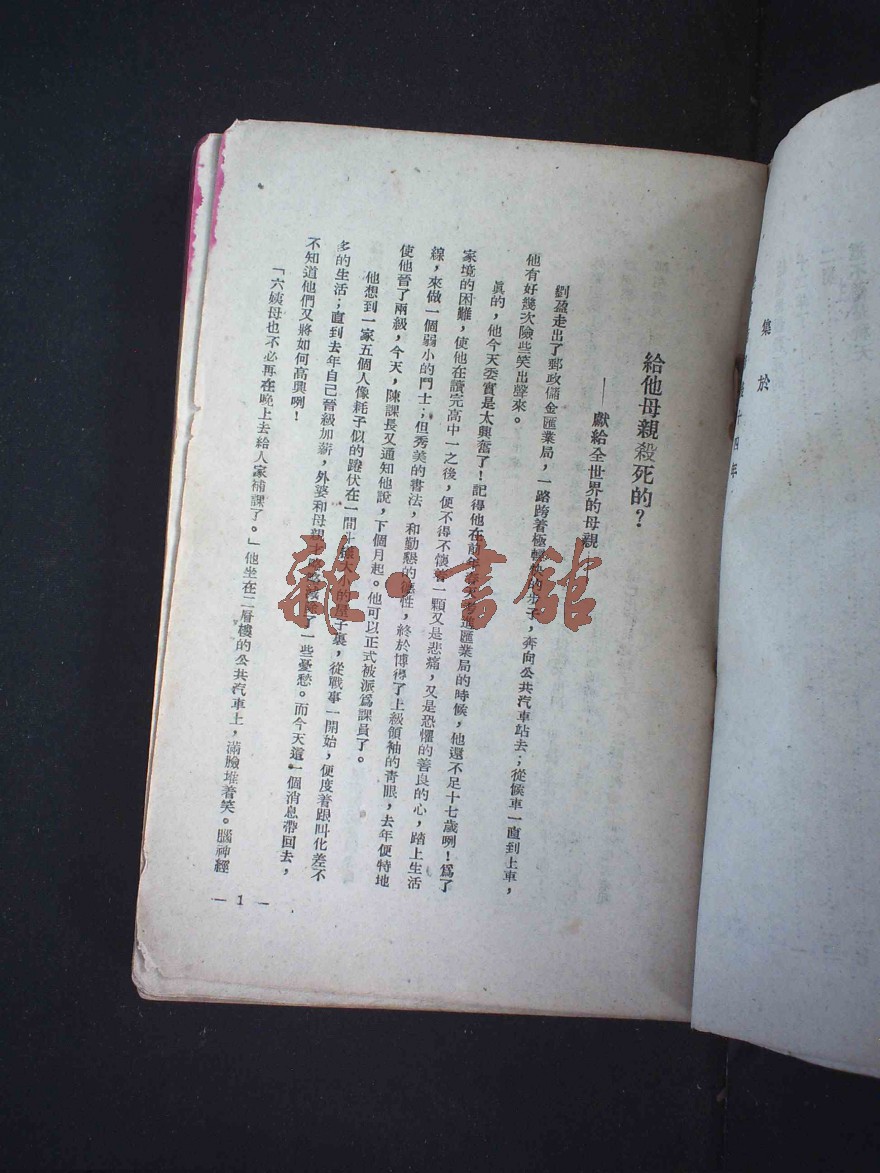 給他母親殺死的？
——獻給全世界的母親——
劉盈走出了郵政儲金匯業局，一路跨着極輕快的步子，奔向公共汽車站去；從候車一直到上車，
他有好幾次險些笑出聲來。
眞的，他今天委實是太興奮了！記得他在前年春天考進匯業局的時候，他還不足十七歲咧！爲了
家境的困難，使他在讀完高中一之後，便不得不懷着一顆又是悲痛，又是恐懼的善良的心，踏上生活
線，來做一個弱小的鬥士；但秀美的書法，和勤懇的德性，終於博得了上級領袖的靑眼，去年便特地
使他晉了兩級，今天，陳課長又通知他說，下個月起。他可以正式被派爲課員了。
他想到一家五個人像耗子似的踡伏在一間斗大小的屋子裏，從戰事一開始，便度着跟叫化差不
多的生活；直到去年自己晉級加薪，外婆和母親才略略減了一些憂愁。而今天這一個消息帶回去，
不知道他們又將如何高興咧！
「六姨母也不必再在晚上去給人家補課了。」他坐在二層樓的公共汽車上，滿臉堆着笑。腦神經
— 1 —
集於
十四年
雜·書館